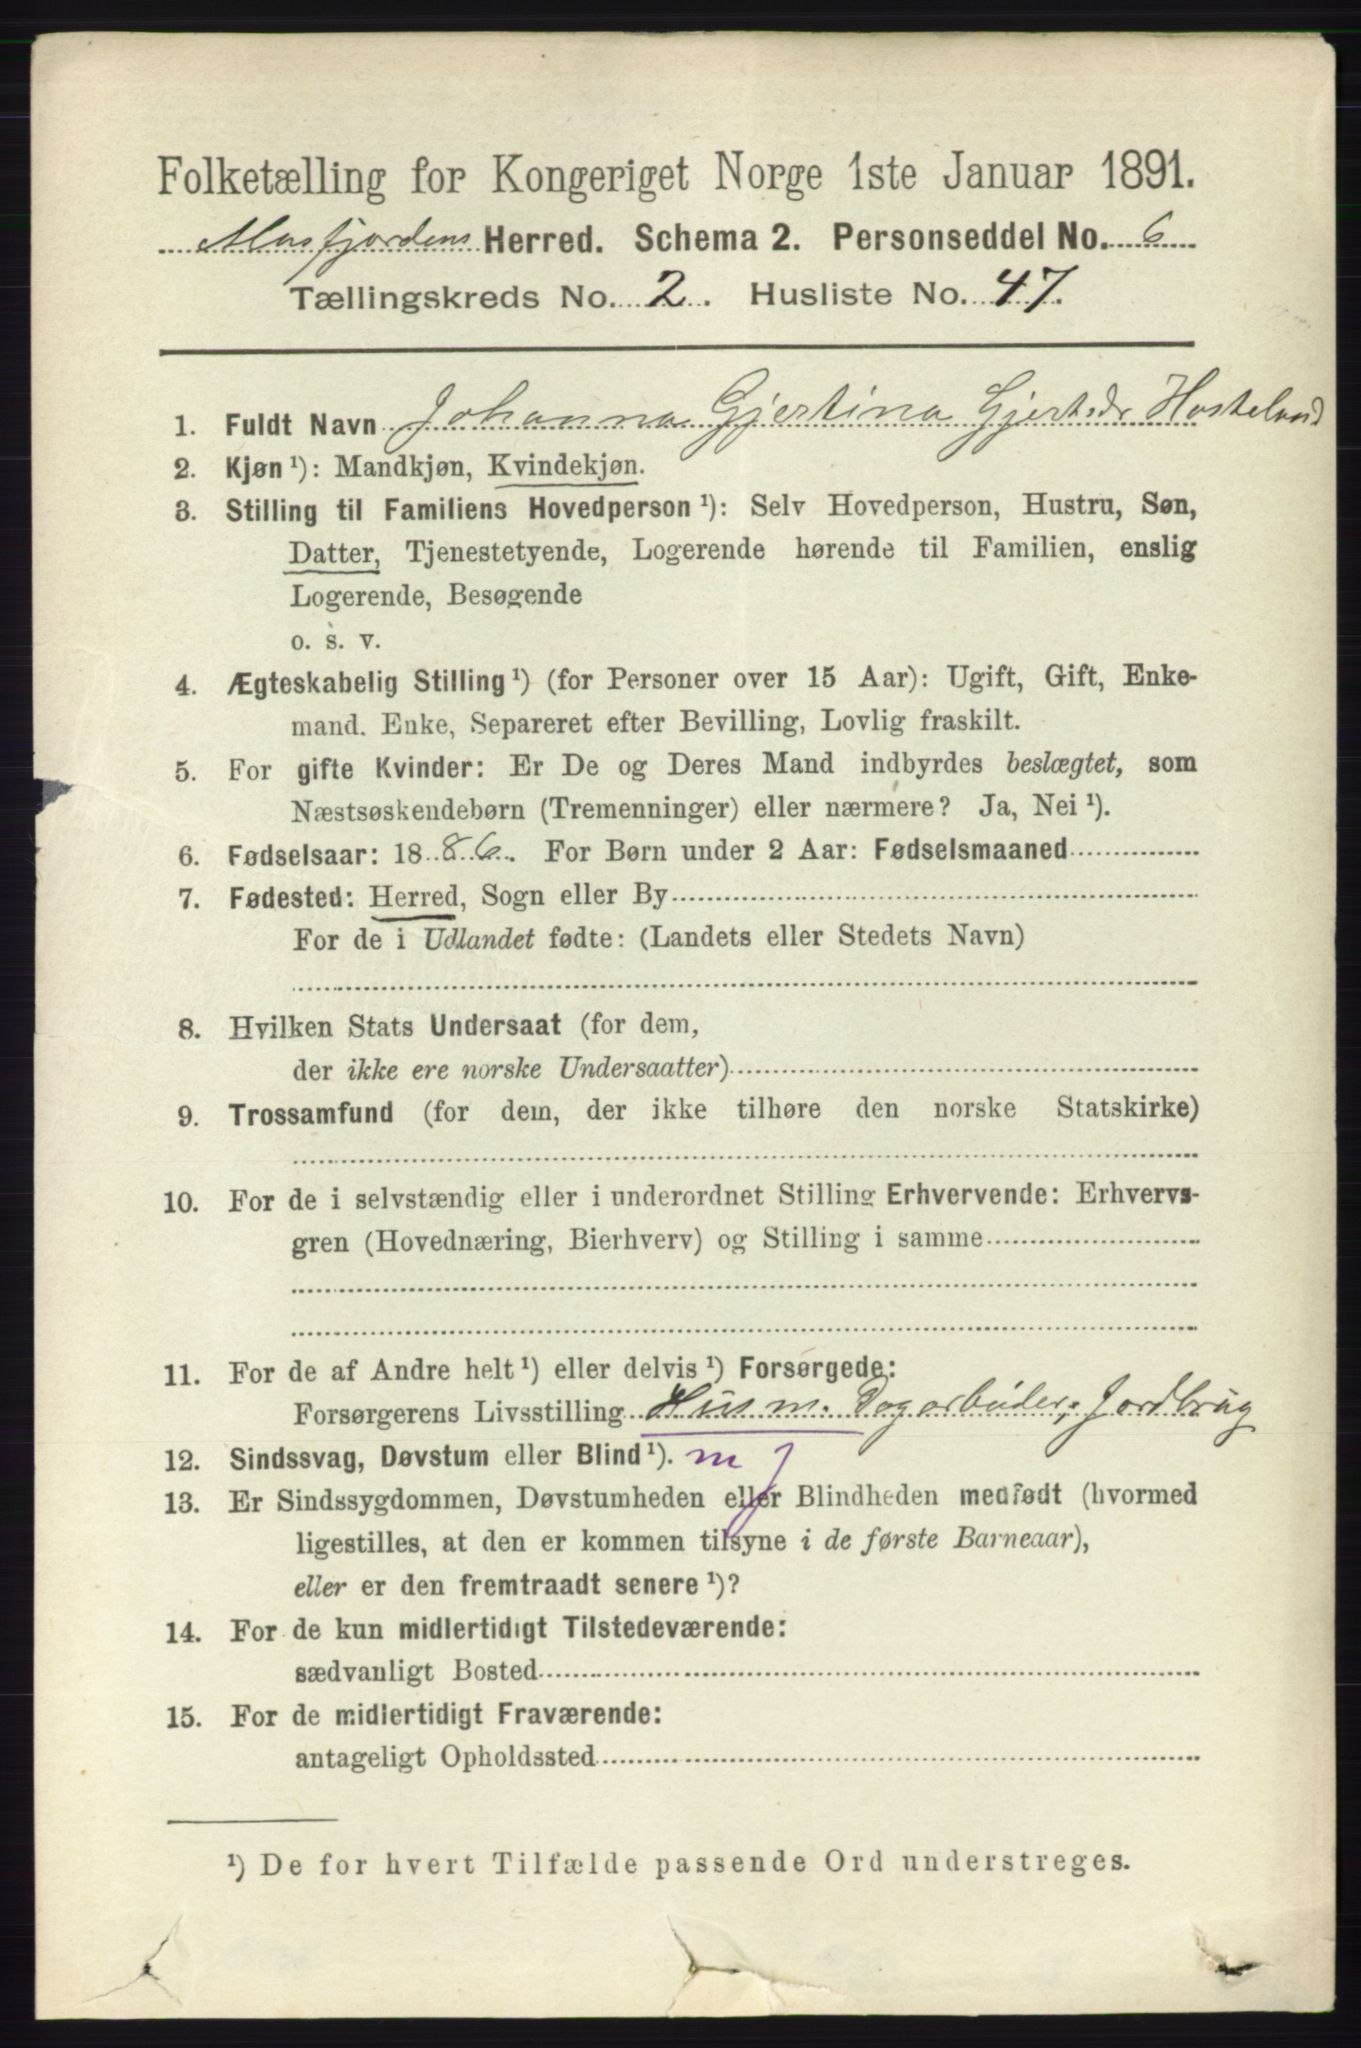 Folketælling for Kongeriget Norge 1ste Januar 1891.
Masfjordens Herred. Schema 2. Personseddel No. 6
Tællingskreds No. 2. Husliste No. 47.
1. Fuldt Navn Johanna Gjertina Gjertsdr Hosteland
2. Kjøn ¹): Mandkjøn, Kvindekjøn.
3. Stilling til Familiens Hovedperson ¹): Selv Hovedperson, Hustru, Søn,
Datter, Tjenestetyende, Logerende hørende til Familien, enslig
Logerende, Besøgende
o. s. v.
4. Ægteskabelig Stilling ¹) (for Personer over 15 Aar): Ugift, Gift, Enke-
mand. Enke, Separeret efter Bevilling, Lovlig fraskilt.
5. For gifte Kvinder: Er De og Deres Mand indbyrdes beslægtet, som
Næstsøskendebørn (Tremenninger) eller nærmere? Ja, Nei ¹).
6. Fødselsaar: 1886. For Børn under 2 Aar: Fødselsmaaned
7. Fødested: Herred, Sogn eller By
For de i Udlandet fødte: (Landets eller Stedets Navn)
8. Hvilken Stats Undersaat (for dem,
der ikke ere norske Undersaatter)
9. Trossamfund (for dem, der ikke tilhøre den norske Statskirke)
10. For de i selvstændig eller i underordnet Stilling Erhvervende: Erhvervs-
gren (Hovednæring, Bierhverv) og Stilling i samme
11. For de af Andre helt ¹) eller delvis ¹) Forsørgede:
Forsørgerens Livsstilling Husm. Dagarbeider, Jordbrug
12. Sindssvag, Døvstum eller Blind ¹). m J
13. Er Sindssygdommen, Døvstumheden eller Blindheden medfødt (hvormed
ligestilles, at den er kommen tilsyne i de første Barneaar),
eller er den fremtraadt senere ¹)?
14. For de kun midlertidigt Tilstedeværende:
sædvanligt Bosted
15. For de midlertidigt Fraværende:
antageligt Opholdssted
¹) De for hvert Tilfælde passende Ord understreges.